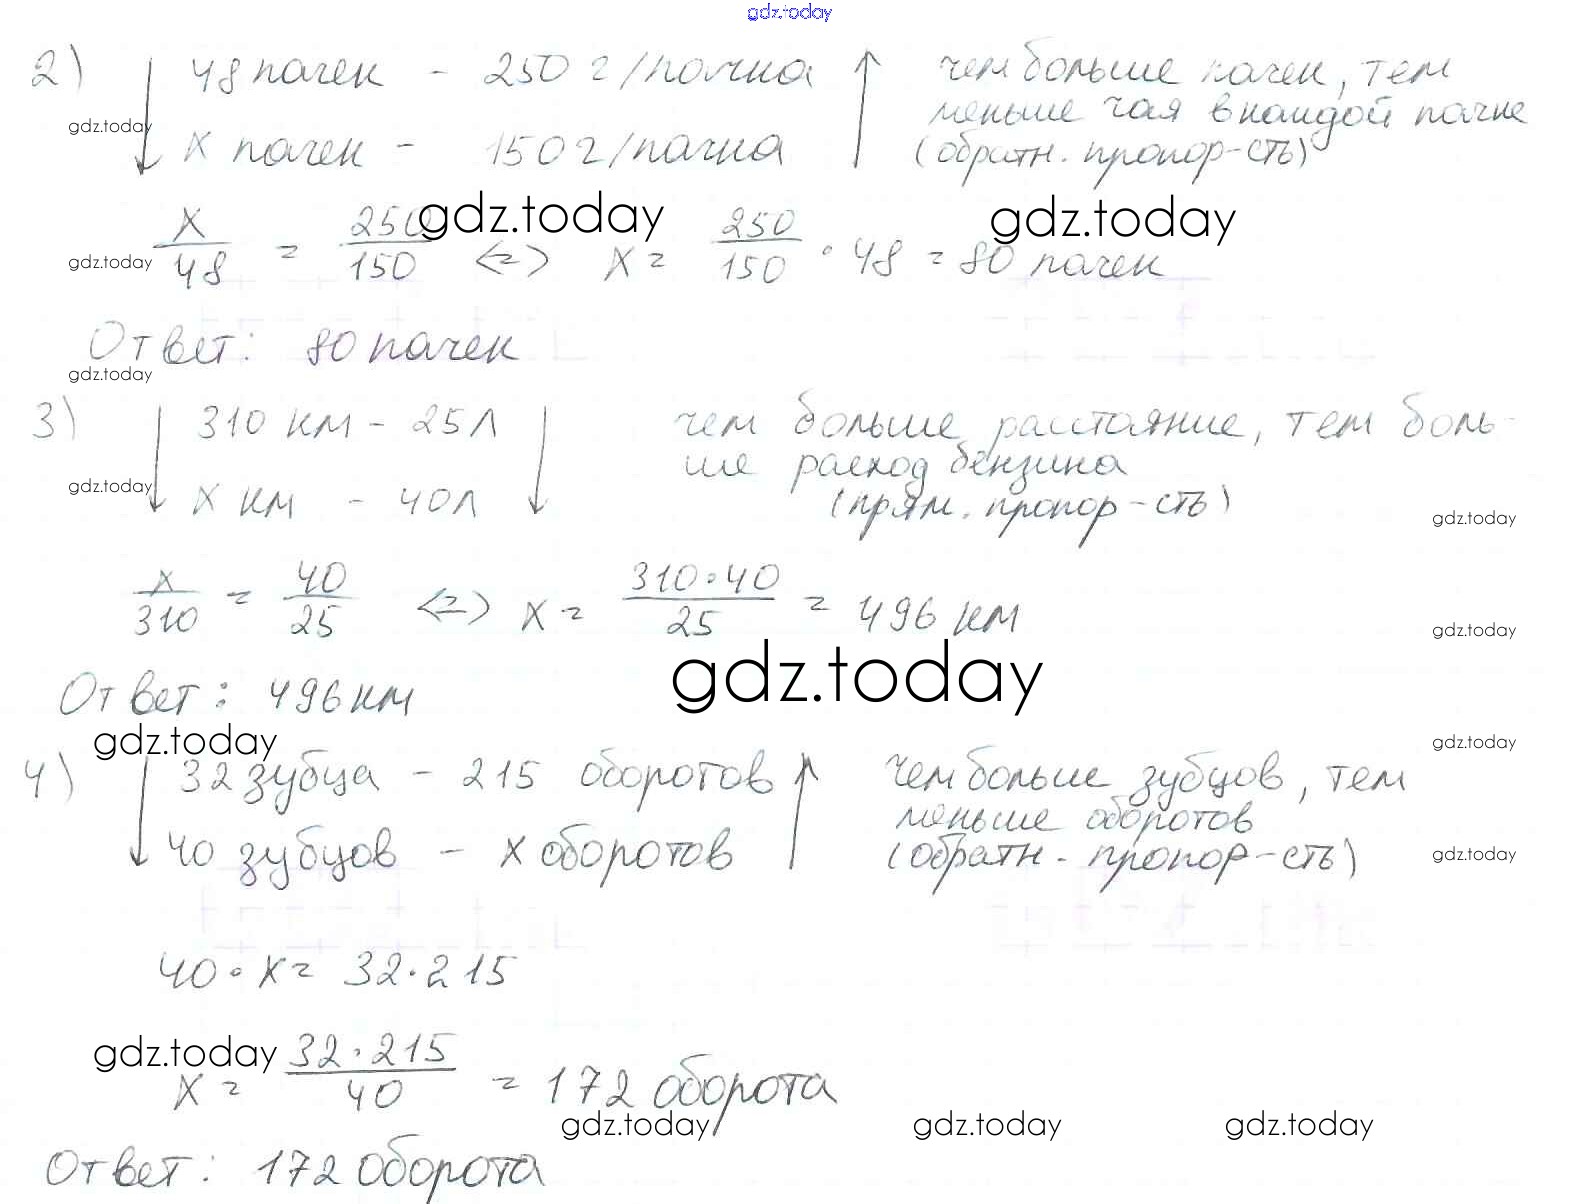 gdz.today
2) 48 пачек - 250 г/пачка чем больше пачек, тем
меньше чая в каждой пачке
gdz.today
x пачек - 150 г/пачка (обратн. пропор-сть)
gdz.today gdz.today
x/48 = 250/150 <=> x = 250/150 · 48 = 80 пачек
gdz.today
Ответ: 80 пачек
gdz.today
3) 310 км - 25 л чем больше расстояние, тем боль-
ше расход бензина
gdz.today
x км - 40 л (прям. пропор-сть)
gdz.today
x/310 = 40/25 <=> x = 310·40/25 = 496 км
gdz.today
gdz.today
Ответ: 496 км
gdz.today gdz.today
4) 32 зубца - 215 оборотов чем больше зубцов, тем
меньше оборотов
40 зубцов - x оборотов (обратн. пропор-сть)
gdz.today
40 · x = 32 · 215
gdz.today
x = 32·215/40 = 172 оборота
gdz.today gdz.today gdz.today
Ответ: 172 оборота